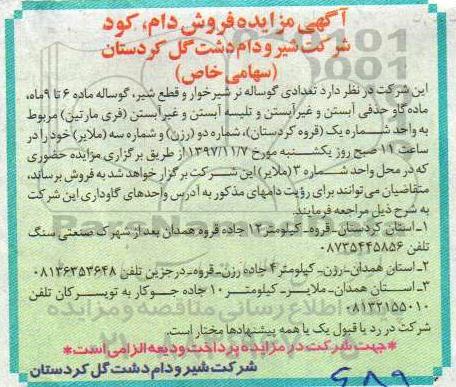 آگهی مزایده فروش دام، کود
شرکت شیر و دام دشت گل کردستان
(سهامی خاص)
این شرکت در نظر دارد تعدادی گوساله نر شیرخوار و قطع شیر، گوساله ماده ۶ تا ۹ماه،
ماده گاو حذفی آبستن و غیرآبستن و تلیسه آبستن و غیرآبستن (فری مارتین) مربوط
به واحد شماره یک (قروه کردستان)، شماره دو (رزن) و شماره سه (ملایر) خود را در
ساعت ۱۱ صبح روز یکشنبه مورخ ۱۳۹۷/۱۱/۷از طریق برگزاری مزایده حضوری
که در محل واحد شماره ۳ (ملایر) این شرکت برگزار خواهد شد به فروش برساند،
متقاضیان می‌توانند برای رؤیت دامهای مذکور به آدرس واحدهای گاوداری این شرکت
به شرح ذیل مراجعه فرمایند.
۱-استان کردستان-قروه-کیلومتر۱۲ جاده قروه همدان بعد از شهرک صنعتی سنگ
تلفن ۰۸۷۳۵۴۴۵۸۵۶
۲-استان همدان-رزن- کیلومتر۴ جاده رزن-قروه-درجزین تلفن ۰۸۱۳۶۳۵۳۶۴۸
۳-استان همدان-ملایر-کیلومتر ۱۰ جاده جوکار به تویسرکان تلفن
۰۸۱۳۲۱۵۵۰۱۰
شرکت در رد یا قبول یک یا همه پیشنهادها مختار است.
*جهت شرکت در مزایده پرداخت ودیعه الزامی است*
شرکت شیر و دام دشت گل کردستان
۶۸۹